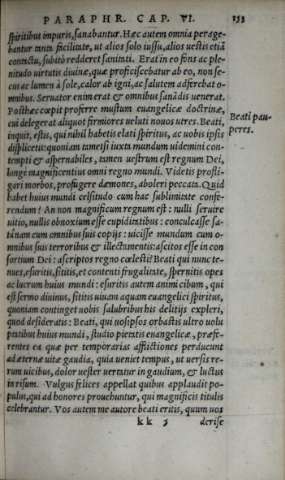 PARAPHR. CAP. VI. 153
spiritibus impuris, sanabantur. Hæc autem omnia perage-
bantur tanta facilitate, ut alios solo iussu, alios uestis etiã
contactu, subitò redderet sanitati. Erat in eo fons ac ple-
nitudo uirtutis diuinæ, quæ proficiscebatur ab eo, non se-
cus ac lumen à sole, calor ab igni, ac salutem adferebat o-
mnibus. Seruator enim erat & omnibus sanãdis uenerat.
Posthæc cœpit proferre mustum euangelicæ doctrinæ,
cui delegerat aliquot firmiores ueluti nouos utres. Beati,
Beati pau-
peres.
inquit, estis, qui nihil habetis elati spiritus, ac uobis ipsis
displicetis: quoniam tametsi iuxta mundum uidemini con-
tempti & aspernabiles, tamen uestrum est regnum Dei,
longe magnificentius omni regno mundi. Videtis profli-
gari morbos, profugere dæmones, aboleri peccata. Quid
habet huius mundi celsitudo cum hac sublimitate confe-
rendum? An non magnificum regnum est: nulli seruire
uitio, nullis obnoxium esse cupiditatibus: conculcasse sa-
tanam cum omnibus suis copijs: uicisse mundum cum o-
mnibus suis terroribus & illectamentis: ascitos esse in con
sortium Dei: ascriptos regno cœlesti? Beati qui nunc te-
nues, esuritis, sititis, et contenti frugalitate, spernitis opes
ac lucrum huius mundi: esuritis autem animi cibum, qui
est sermo diuinus, sititis uiuam aquam euangelici spiritus,
quoniam continget uobis salubribus his delitijs expleri,
quod desideratis: Beati, qui uosipsos orbastis ultro uolu
ptatibus huius mundi, studio pietatis euangelicæ, præfe-
rentes ea quæ per temporarias afflictiones perducunt
ad æternæ uitæ gaudia, quia ueniet tempus, ut uersis re-
rum uicibus, dolor uester uertatur in gaudium, & luctus
in risum. Vulgus felices appellat quibus applaudit po-
pulus, qui ad honores prouehuntur, qui magnificis titulis
celebrantur. Vos autem me autore beati eritis, quum uos
kk 3 derise